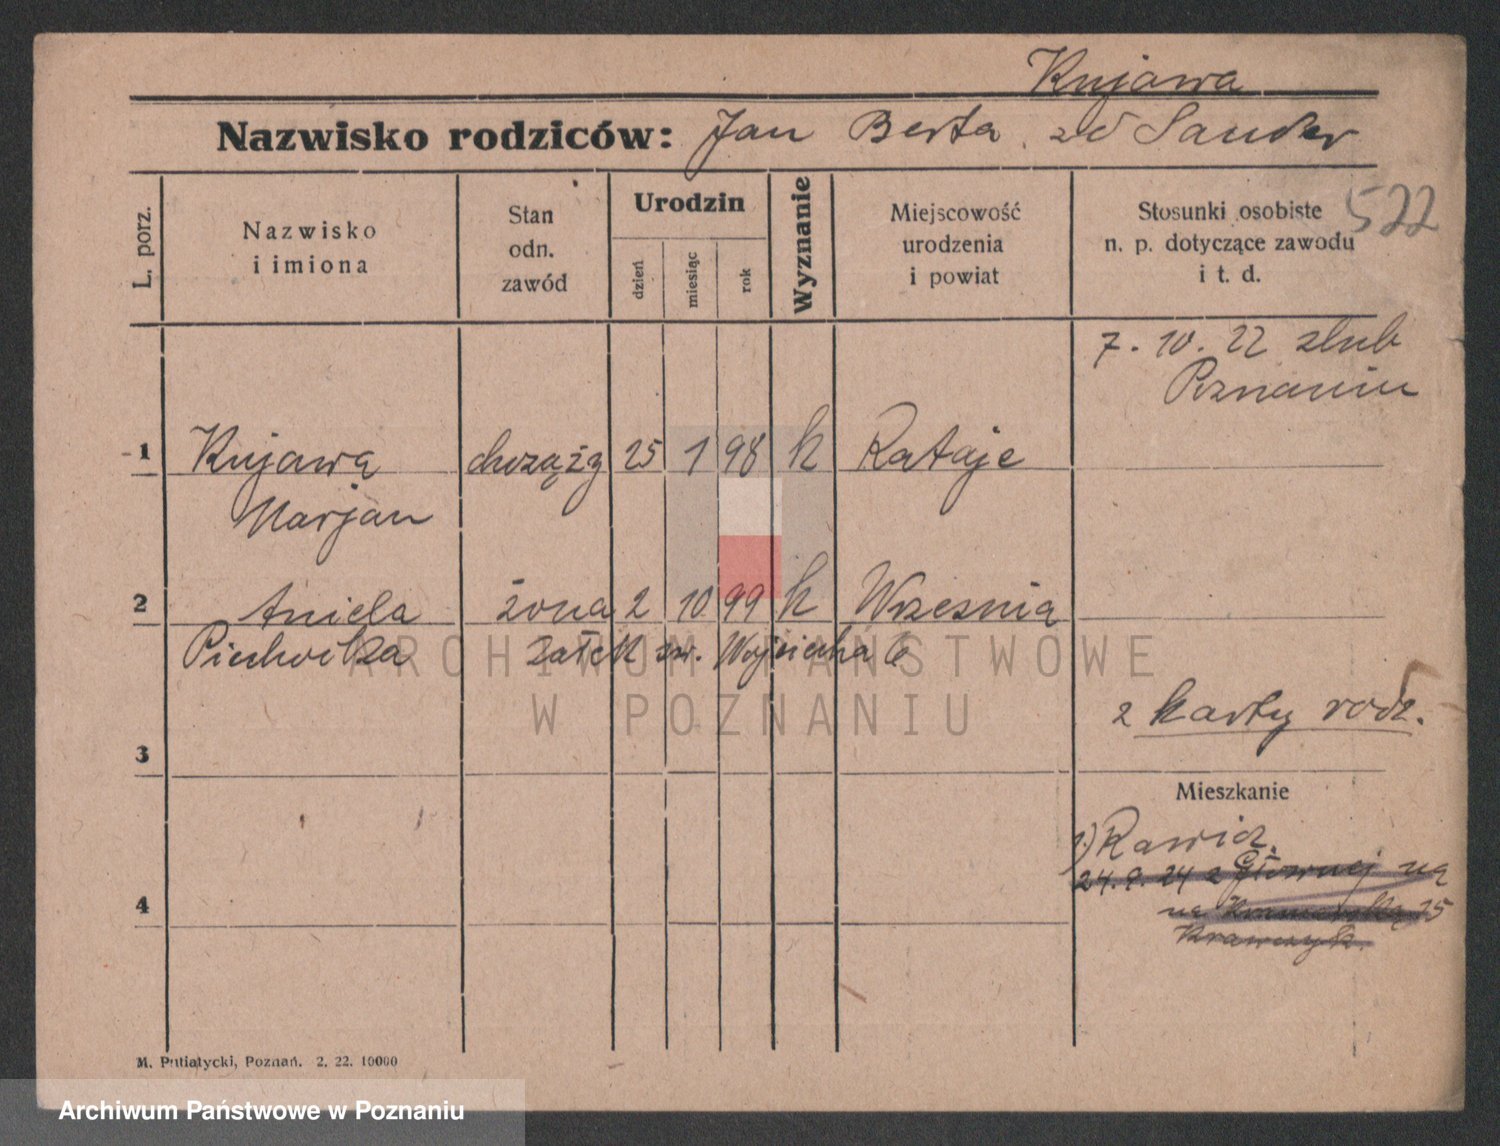 Kujawa
Nazwisko rodziców: Jan Berta zd Sander
L. porz.
Nazwisko
i imiona
Stan
odn.
zawód
Urodzin
dzień
miesiąc
rok
Wyznanie
Miejscowość
urodzenia
i powiat
Stosunki osobiste
n. p. dotyczące zawodu
i t. d.
522
7. 10. 22 slub
Poznaniu
1 Kujawa chorąży 25 1 98 k Rataje
Marjan
2 Aniela żona 2 10 99 k Wrzesnia
Piechocka św. Wojciecha 6
ARCHIWUM PAŃSTWOWE
W POZNANIU
2 karty rodz.
3
Mieszkanie
1.) Rawicz.
24. 9. 24 z Głownej na
4
na 25
Krawczyk.
M. Putiatycki, Poznań. 2. 22. 10000
Archiwum Państwowe w Poznaniu